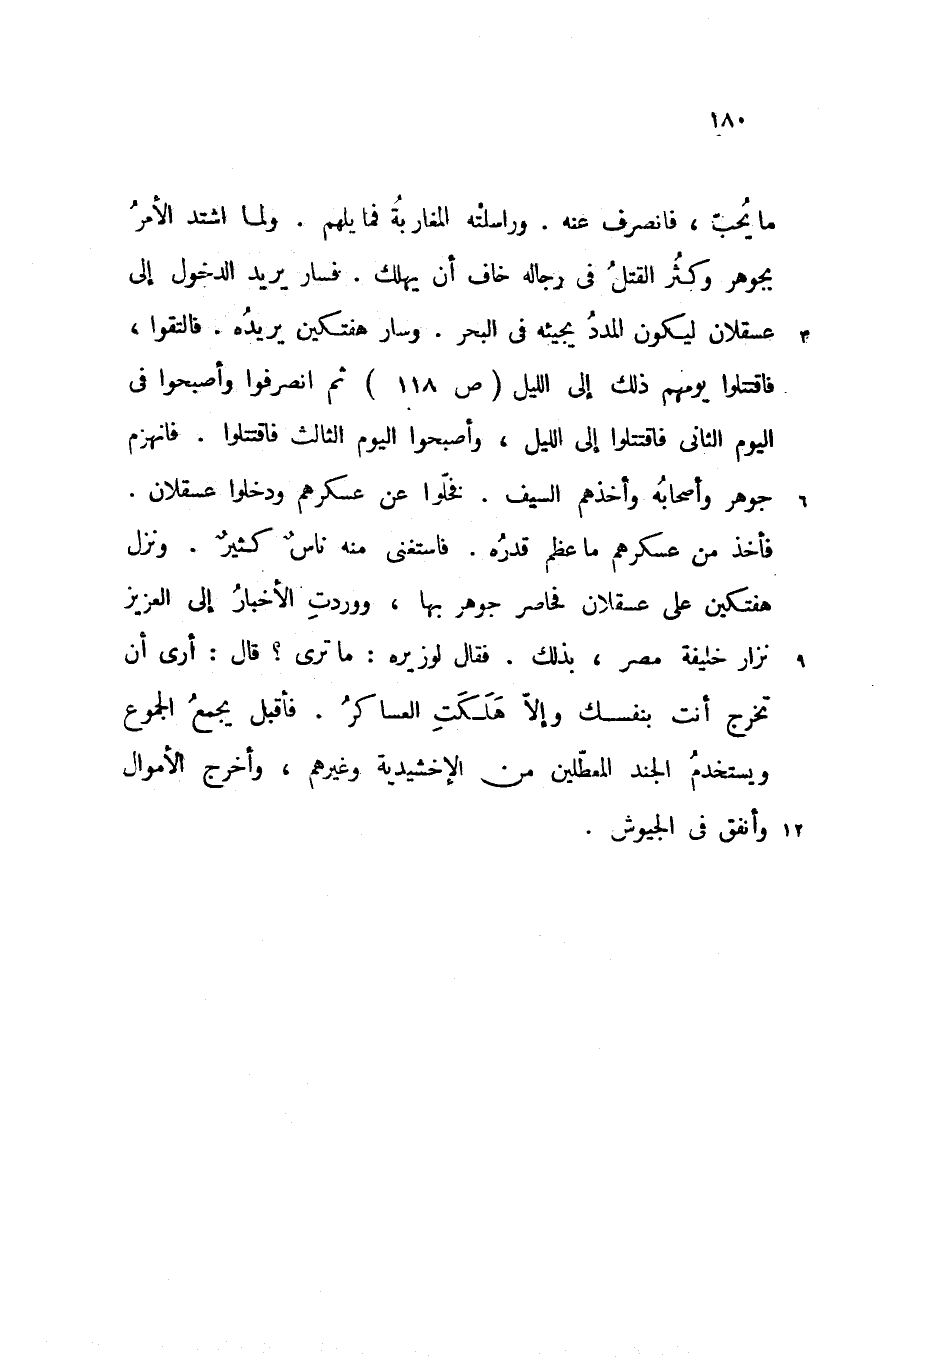 ١٨٠
ما يُحبّ ، فانصرف عنه . وراسلتْه المغاربةُ فما يلهم . ولما اشتد الأمرُ
بجوهر وكثُر القتلُ فى رجاله خاف أن يهلك . فسار يريد الدخول إلى
٣ عسقلان ليكون المددُ يجيئه فى البحر . وسار هفتكين يريدُه . فالتقوا ،
فاقتتلوا يومهم ذلك إلى الليل ( ص ١١٨ ) ثم انصرفوا وأصبحوا فى
اليوم الثانى فاقتتلوا إلى الليل ، وأصبحوا اليوم الثالث فاقتتلوا . فانهزم
٦ جوهر وأصحابُه وأخذهم السيف . فخلّوا عن عسكرهم ودخلوا عسقلان .
فأخذ من عسكرهم ما عظم قدرُه . فاستغنى منه ناسٌ كثيرٌ . ونزل
هفتكين على عسقلان فحاصر جوهر بها ، ووردتِ الأخبارُ إلى العزيز
٩ نزار خليفة مصر ، بذلك . فقال لوزيره : ما ترى ؟ قال : أرى أن
تخرج أنت بنفسك وإلاّ هَلَكَتِ العساكرُ . فأقبل يجمعُ الجموع
ويستخدمُ الجند المعطّلين من الإخشيدية وغيرهم ، وأخرج الأموال
١٢ وأنفق فى الجيوش .